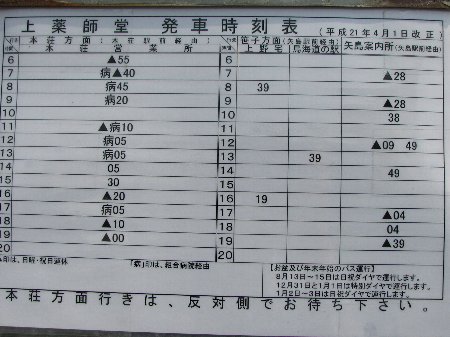 上薬師堂 発車時刻表 (平成21年4月1日改正)
本荘方面 本荘営業所
笹子方面 上野宅 鳥海道の駅 矢島案内所(矢島駅前経由)
6 ▲55 6
7 病▲40 7 ▲28
8 病45 8 39
9 病20 9 ▲28
10 10 38
11 ▲病10 11
12 病05 12 ▲09 49
13 病05 13 39
14 05 14 49
15 30 15
16 ▲20 16 19
17 病05 17 ▲04
18 ▲10 18 04
19 ▲00 19 ▲39
20 20
▲印は、日曜・祝日運休 「病」印は、組合病院経由
【お盆及び年末年始のバス運行】
8月13日~15日は日祝ダイヤで運行します。
12月31日と1月1日は特別ダイヤで運行します。
1月2日~3日は日祝ダイヤで運行します。
本荘方面行きは、反対側でお待ち下さい。